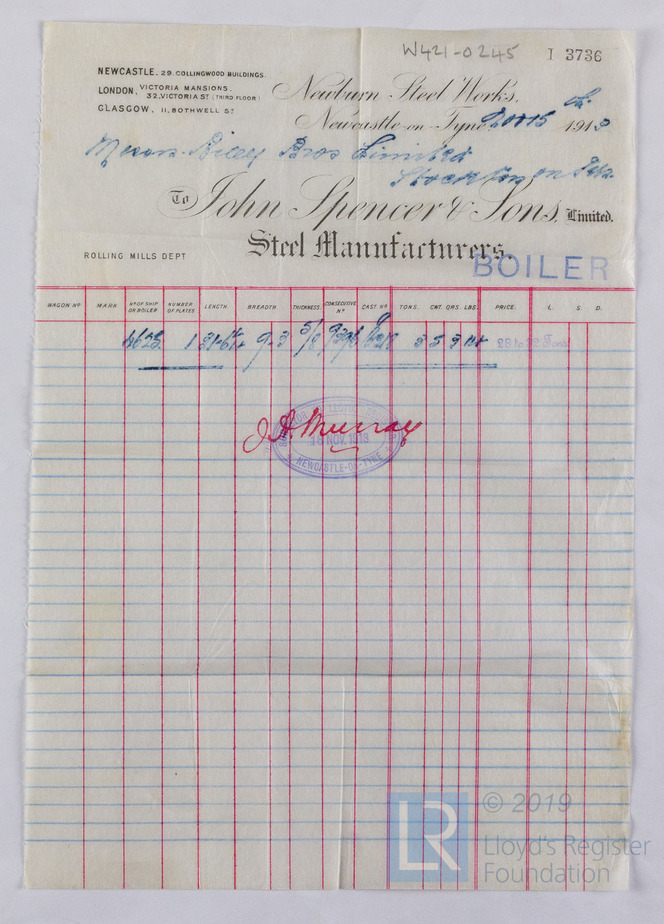 W421-0245
I 3736
NEWCASTLE. 29. COLLINGWOOD BUILDINGS.
LONDON, VICTORIA MANSIONS.
32, VICTORIA ST (THIRD FLOOR)
GLASGOW, 11, BOTHWELL ST
Newburn Steel Works,
Newcastle-on-Tyne Nov 15 th 1913
Messrs. Riley Bros Limited
Stockton on Tees.
To John Spencer & Sons, Limited.
Steel Manufacturers.
ROLLING MILLS DEPT
BOILER
WAGON No MARK No OF SHIP OR BOILER NUMBER OF PLATES LENGTH BREADTH THICKNESS. CONSECUTIVE No CAST No TONS. CWT. QRS. LBS. PRICE. L. S. D.
1 9-3 5/8 3 5 3 28 to 32 Tons
J. A. Murray
NOV. 1913
NEWCASTLE-ON-TYNE
LR © 2019
Lloyd's Register
Foundation